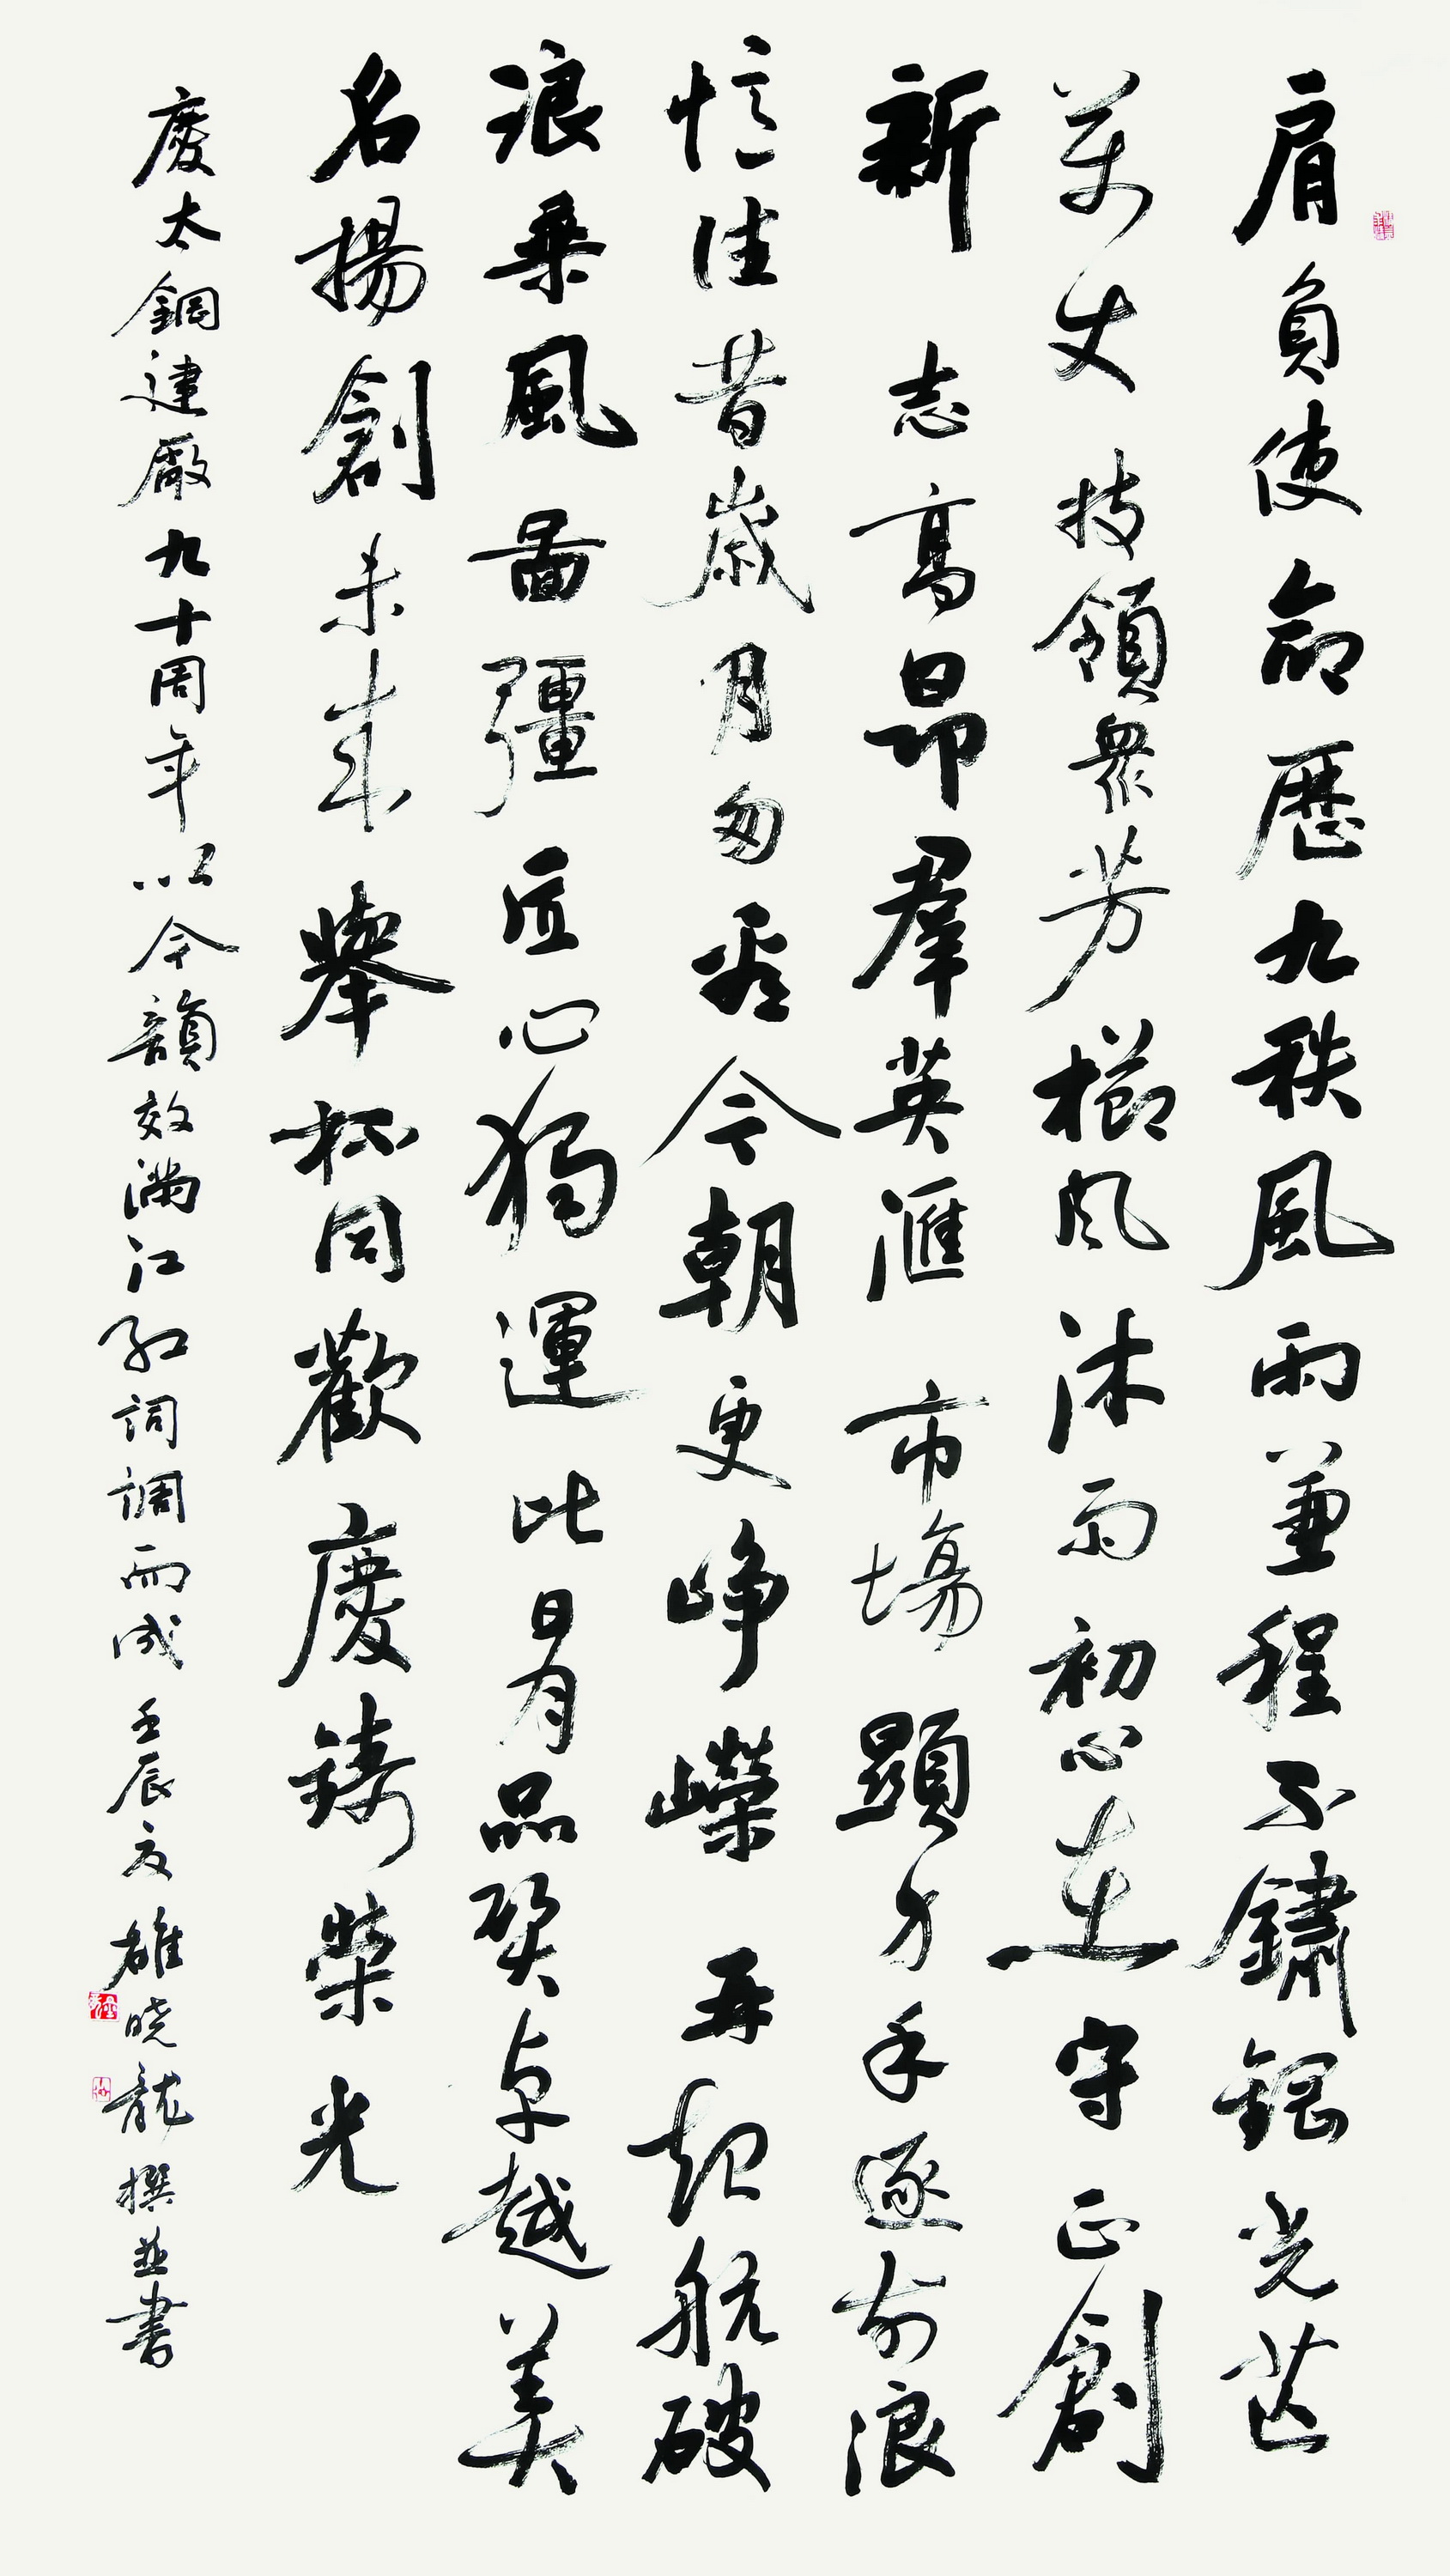 肩負使命歷九秩風雨兼程不鏽鋼光芒
萬丈技領衆芳櫛风沐雨初心在守正創
新志高昂羣英滙市場顯身手逐前浪
憶往昔歲月匆看今朝更崢嶸再起航破
浪乘風啚彊匠心獨運此曷品質卓越美
名揚創未來舉杯同歡慶鑄榮光
慶太鋼建厰九十周年以今韻效滿江紅詞調而成壬辰夏雄曉龍撰並書